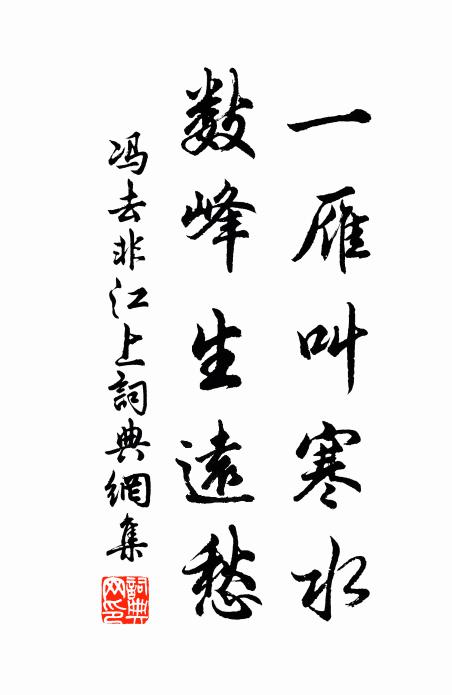 一雁叫寒水
数峰生遠愁
冯去非江上詞典網集
詞典網印